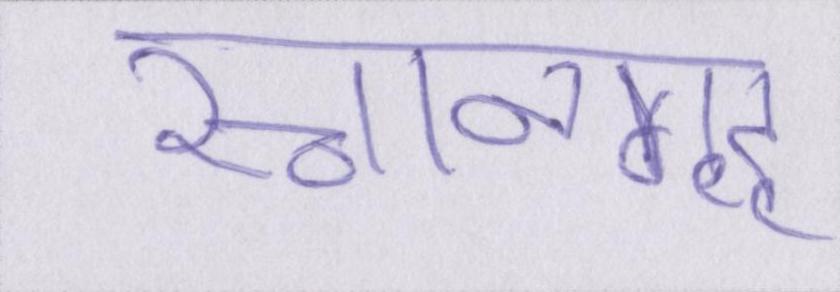 स्नानगृह